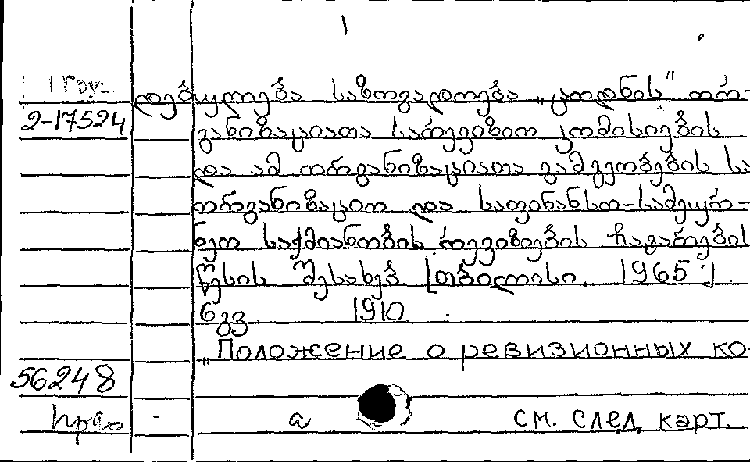 1
დებულება საზოგადოება „ცოდნის" ორ-
2-17524
განიზაციათა სარევიზიო კომისიების
და ამ ორგანიზაციათა გამგეობების სა
ორგანიზაციო და საფინანსო-სამეურ-
ნეო საქმიანობის რევიზიების ჩატარების
წესის შესახებ [თბილისი, 1965]
6 გვ 1910
„Положение о ревизионных ко-
56248
а см. след. карт.